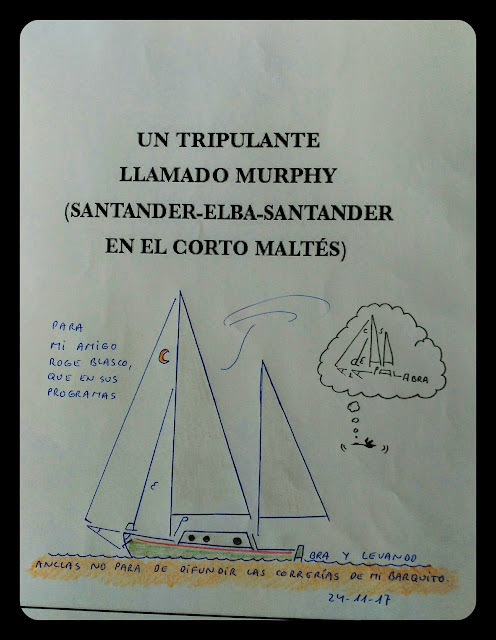 UN TRIPULANTE
LLAMADO MURPHY
(SANTANDER-ELBA-SANTANDER
EN EL CORTO MALTÉS)
PARA
MI AMIGO
ROGE BLASCO,
QUE EN SUS
PROGRAMAS
C
E
P
C S
DE
PALABRA
BRA Y LEVANDO
ANCLAS NO PARA DE DIFUNDIR LAS CORRERÍAS DE MI BARQUITO.
24-11-17